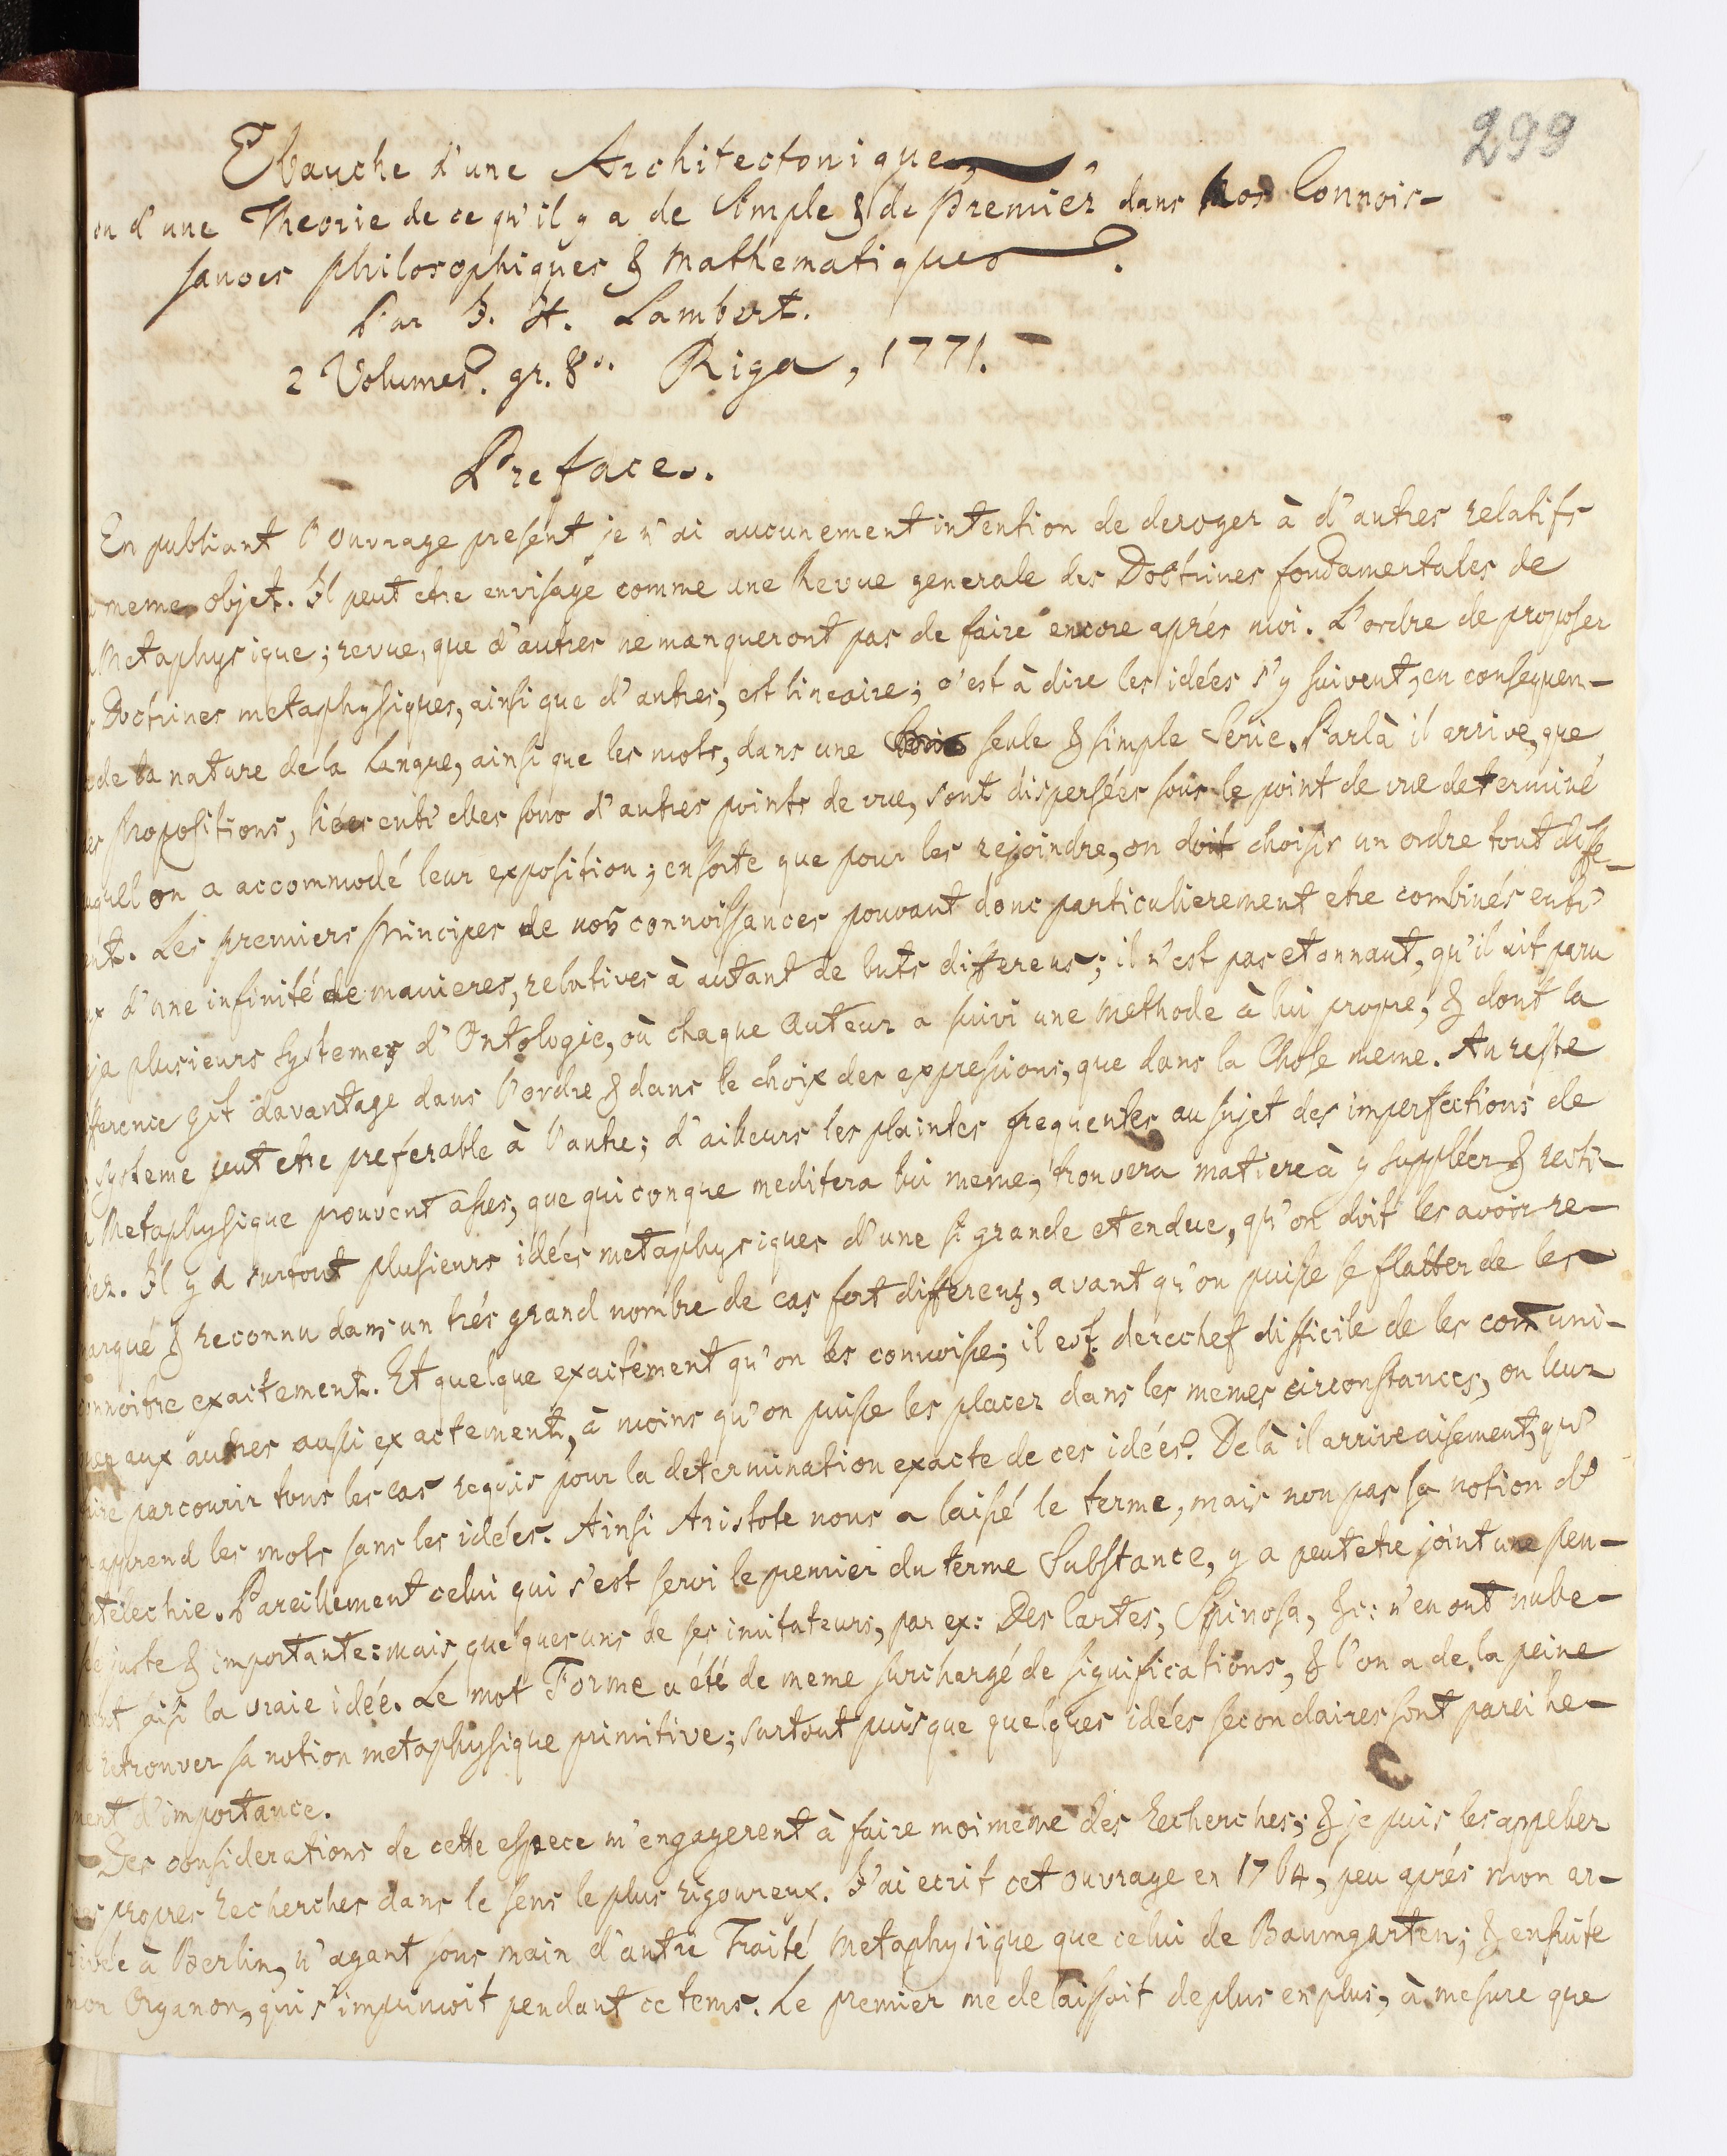 299
Ebauche d'une Architectonique,
ou d'une Theorie de ce qu'il y a de Simple & de Premier dans nos Connois-
sances philosophiques & mathematiques.
Par J. H. Lambert.
2 Volumes. gr. 8vo. Riga, 1771.
Preface.
En publiant l'ouvrage present je n'ai aucunement intention de deroger à d'autres relatifs
meme objet. Il peut etre envisagé comme une Revue generale des Doctrines fondamentales de
Metaphysique; revue, que d'autres ne manqueront pas de faire encore aprés moi. L'ordre de proposer
Doctrines metaphysiques, ainsi que d'autres, est lineaire; c'est à dire les idées s'y suivent, en consequen-
de la nature de la Langue, ainsi que les mots, dans une seule & simple Serie. Par là il arrive, que
propositions, liées entr'elles sous d'autres points de vue, sont dispersées sous le point de vue determiné
uquel on a accommodé leur exposition; ensorte que pour les rejoindre, on doit choisir un ordre tout diffe-
ent. Les premiers principes de nos connoissances pouvant donc particulierement etre combinés entr'
ux d'une infinité de manieres, relatives à autant de buts differens; il n'est pas etonnant, qu'il ait paru
ja plusieurs systemes d'Ontologie, où chaque Auteur a suivi une methode à lui propre; & dont la
fference git davantage dans l'ordre & dans le choix des expressions, que dans la Chose meme. Au reste
systeme peut etre preferable à l'autre; d'ailleurs les plaintes frequentes au sujet des imperfections de
Metaphysique prouvent assés, que quiconque meditera lui meme, trouvera matiere à y suppléer & recti-
ier. Il y a surtout plusieurs idées metaphysiques d'une si grande etendue, qu'on doit les avoir re-
marqué & reconnu dans un trés grand nombre de cas fort differens, avant qu'on puisse se flatter de les
onnoitre exactement. Et quelque exactement qu'on les connoisse; il est derechef difficile de les com̄uni-
quer aux autres aussi exactement, à moins qu'on puisse les placer dans les memes circonstances, ou leur
aire parcourir tous les cas requis pour la determination exacte de ces idées. De là il arrive aisement, qu'
apprend les mots sans les idées. Ainsi Aristote nous a laissé le terme, mais non pas sa notion d'
ntelechie. Pareillement celui qui s'est servi le premier du terme Substance, y a peutetre joint une pen-
sée juste & importante: mais quelques uns de ses imitateurs, par ex: Des Cartes, Spinosa, &c: n'en ont nulle-
ment saisi la vraie idée. Le mot Forme a été de meme surchargé de significations, & l'on a de la peine
retrouver sa notion metaphysique primitive; surtout puisque quelques idées secondaires sont pareille-
ment d'importance.
Des considerations de cette espece m'engagerent à faire moi meme des Recherches; & je puis les appeller
propres recherches dans le sens le plus rigoureux. J'ai ecrit cet ouvrage en 1764, peu aprés mon ar-
rivée à Berlin, n'ayant sous main d'autre Traité Metaphysique que celui de Baumgarten; & ensuite
mon Organon, qui s'imprimoit pendant ce tems. Le premier me delaissoit de plus en plus, à mesure que